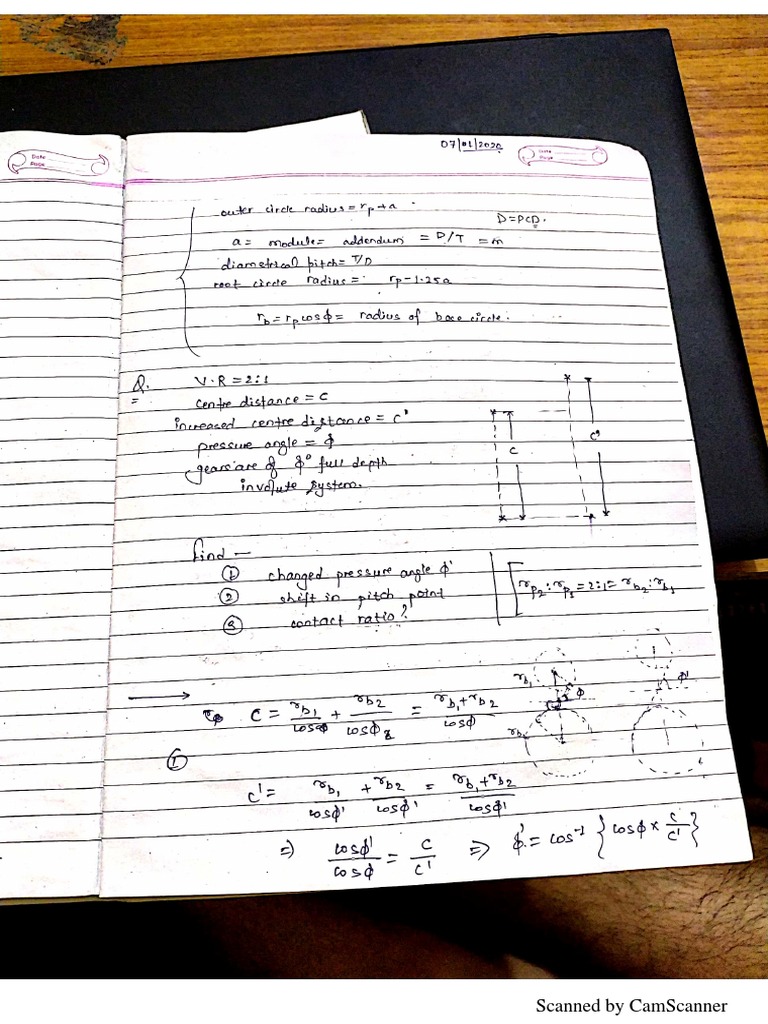 Date
Page
07/01/2020
Date
Page
outer circle radius = rp + a
D = PCD.
a = module = addendum = D/T = m
diametrical pitch = T/D
root circle radius = rp - 1.25a
rb = rp cosϕ = radius of base circle.
Q. V.R = 2:1
centre distance = C
increased centre distance = C'
pressure angle = ϕ
gears are of ϕ° full depth
involute system.
C
C'
find —
① changed pressure angle ϕ'
② shift in pitch point
③ contact ratio?
rp2 : rp1 = 2:1 = rb2 : rb1
rb1
ϕ
ϕ'
rb2
C = rb1/cosϕ + rb2/cosϕ = (rb1 + rb2)/cosϕ
①
C' = rb1/cosϕ' + rb2/cosϕ' = (rb1 + rb2)/cosϕ'
⇒ cosϕ'/cosϕ = C/C' ⇒ ϕ' = cos⁻¹ {cosϕ × C/C'}
Scanned by CamScanner